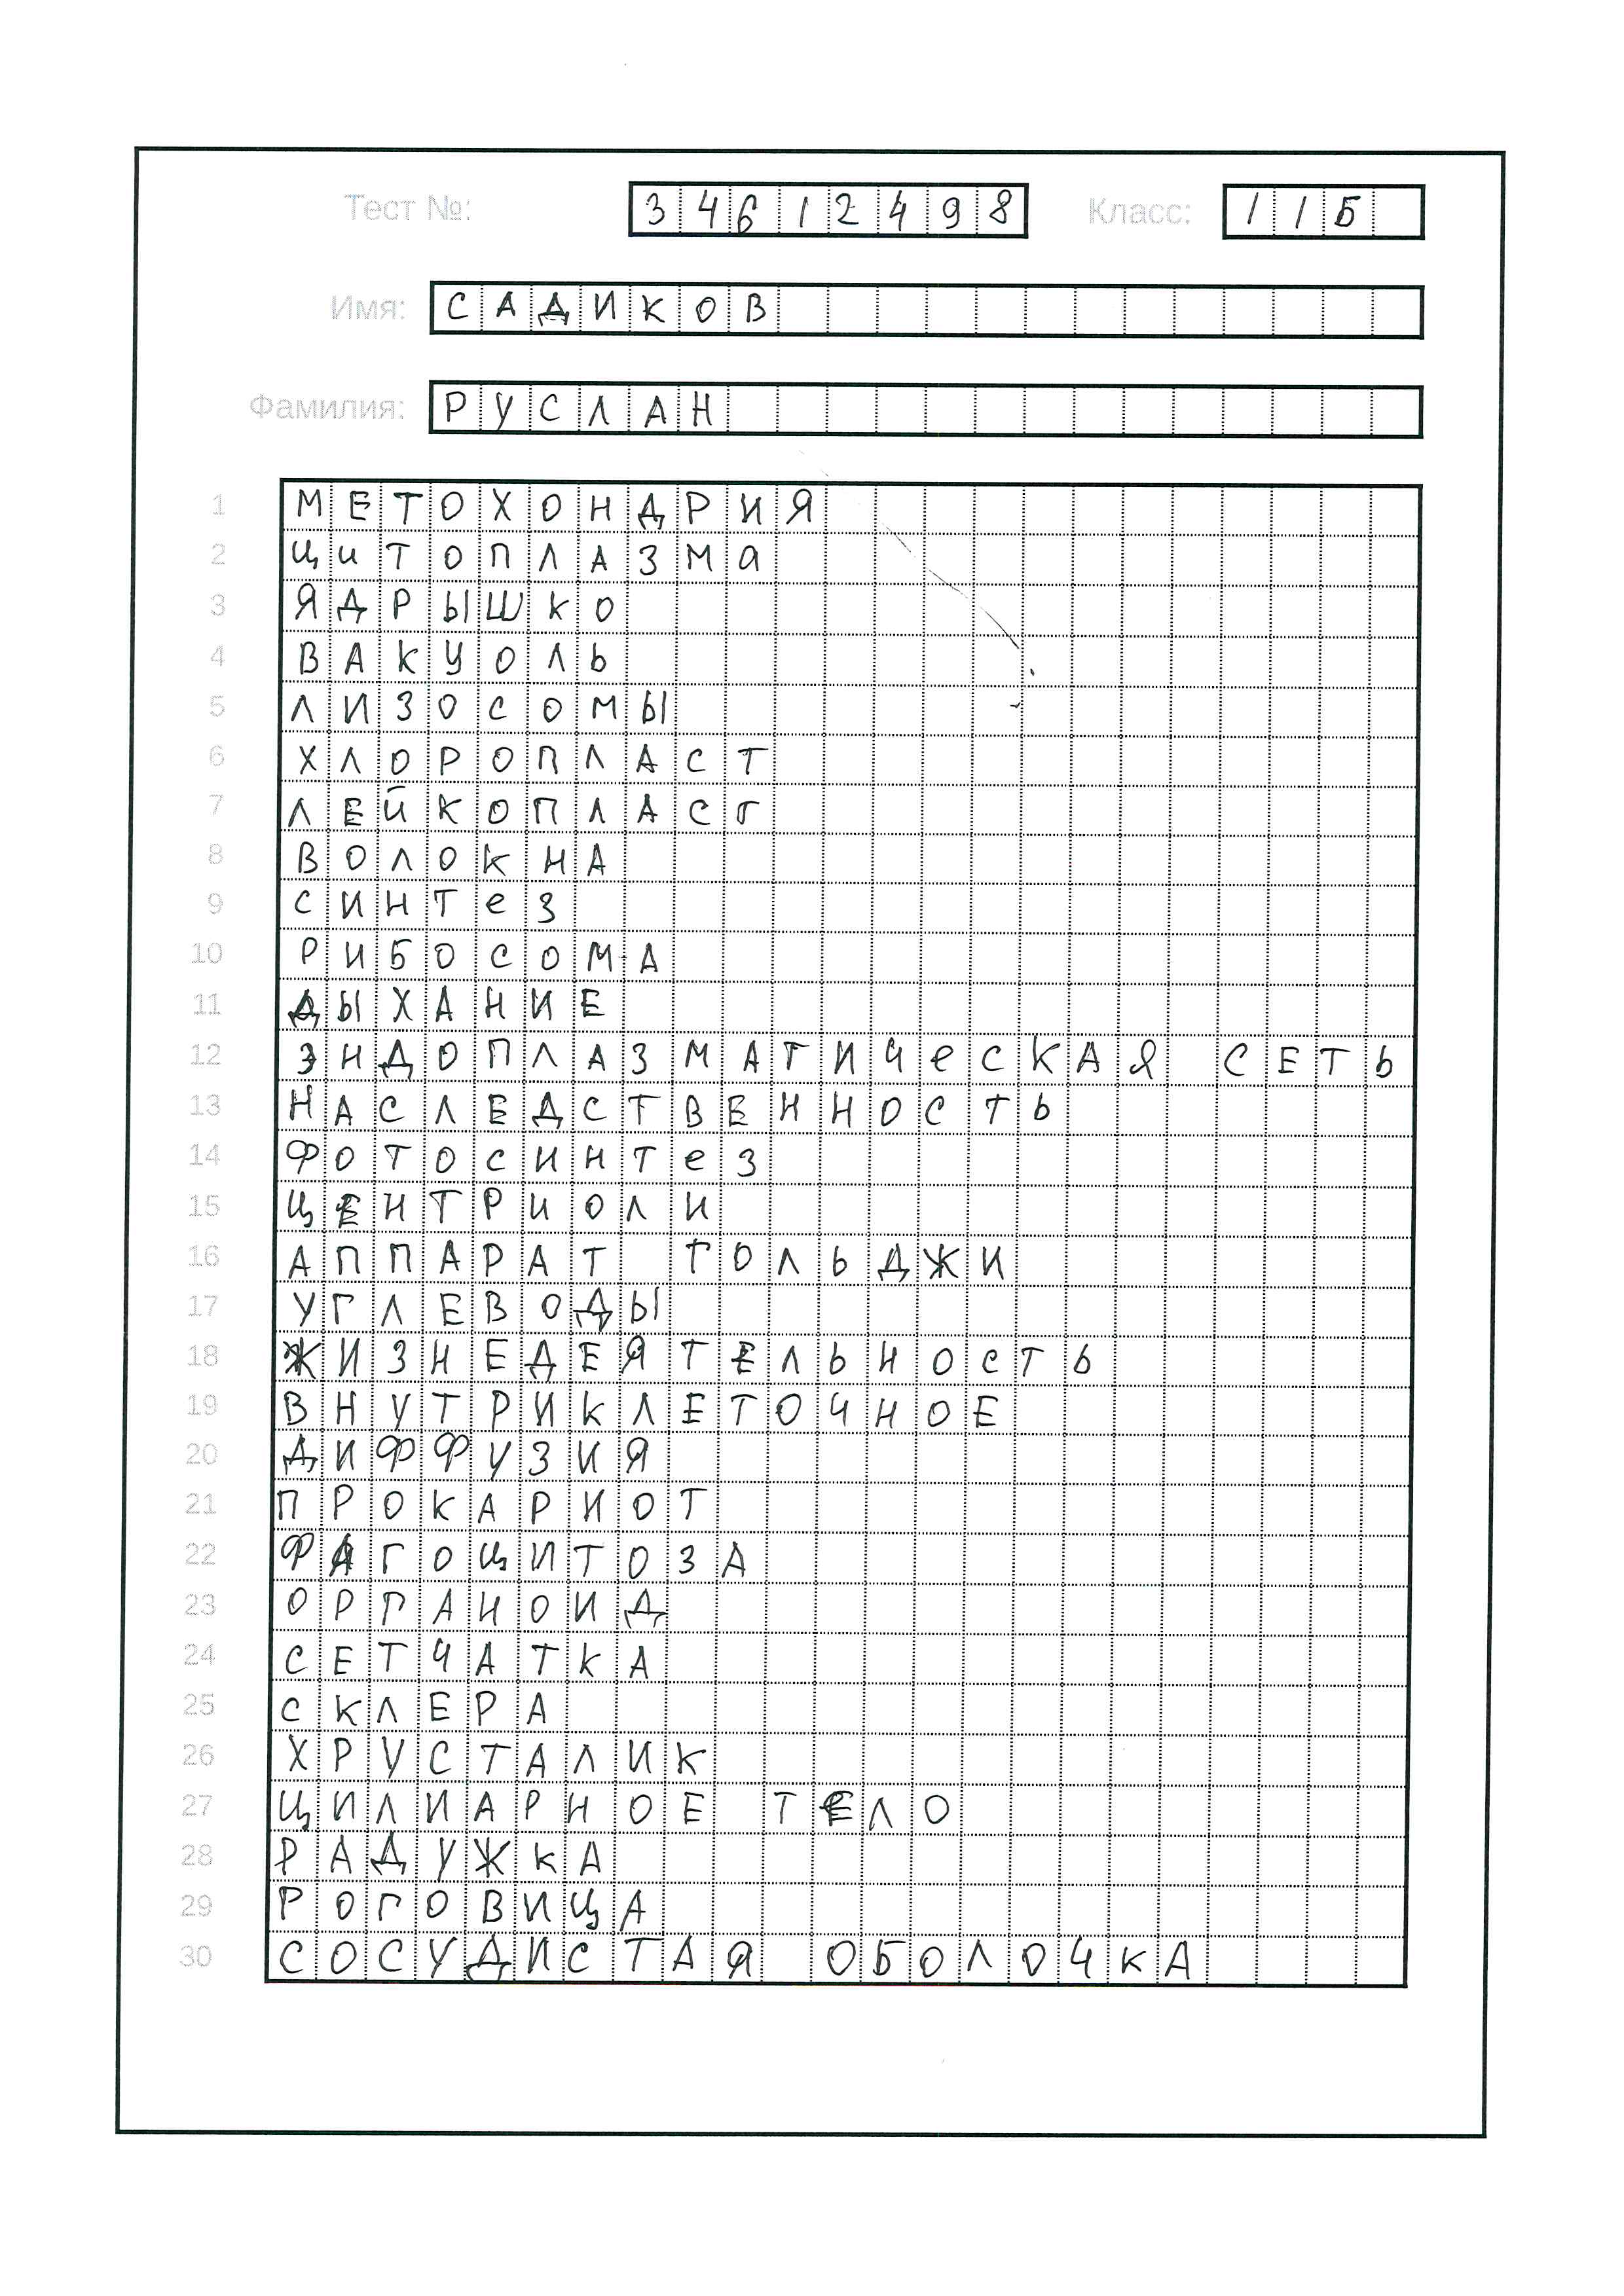 Тест №: 34612498 Класс: 11Б
Имя: САДИКОВ
Фамилия: РУСЛАН
1 МЕТОХОНДРИЯ
2 ЦИТОПЛАЗМА
3 ЯДРЫШКО
4 ВАКУОЛЬ
5 ЛИЗОСОМЫ
6 ХЛОРОПЛАСТ
7 ЛЕЙКОПЛАСТ
8 ВОЛОКНА
9 СИНТЕЗ
10 РИБОСОМА
11 ДЫХАНИЕ
12 ЭНДОПЛАЗМАТИЧЕСКАЯ СЕТЬ
13 НАСЛЕДСТВЕННОСТЬ
14 ФОТОСИНТЕЗ
15 ЦЕНТРИОЛИ
16 АППАРАТ ГОЛЬДЖИ
17 УГЛЕВОДЫ
18 ЖИЗНЕДЕЯТЕЛЬНОСТЬ
19 ВНУТРИКЛЕТОЧНОЕ
20 ДИФФУЗИЯ
21 ПРОКАРИОТ
22 ФАГОЦИТОЗА
23 ОРГАНОИД
24 СЕТЧАТКА
25 СКЛЕРА
26 ХРУСТАЛИК
27 ЦИЛИАРНОЕ ТЕЛО
28 РАДУЖКА
29 РОГОВИЦА
30 СОСУДИСТАЯ ОБОЛОЧКА